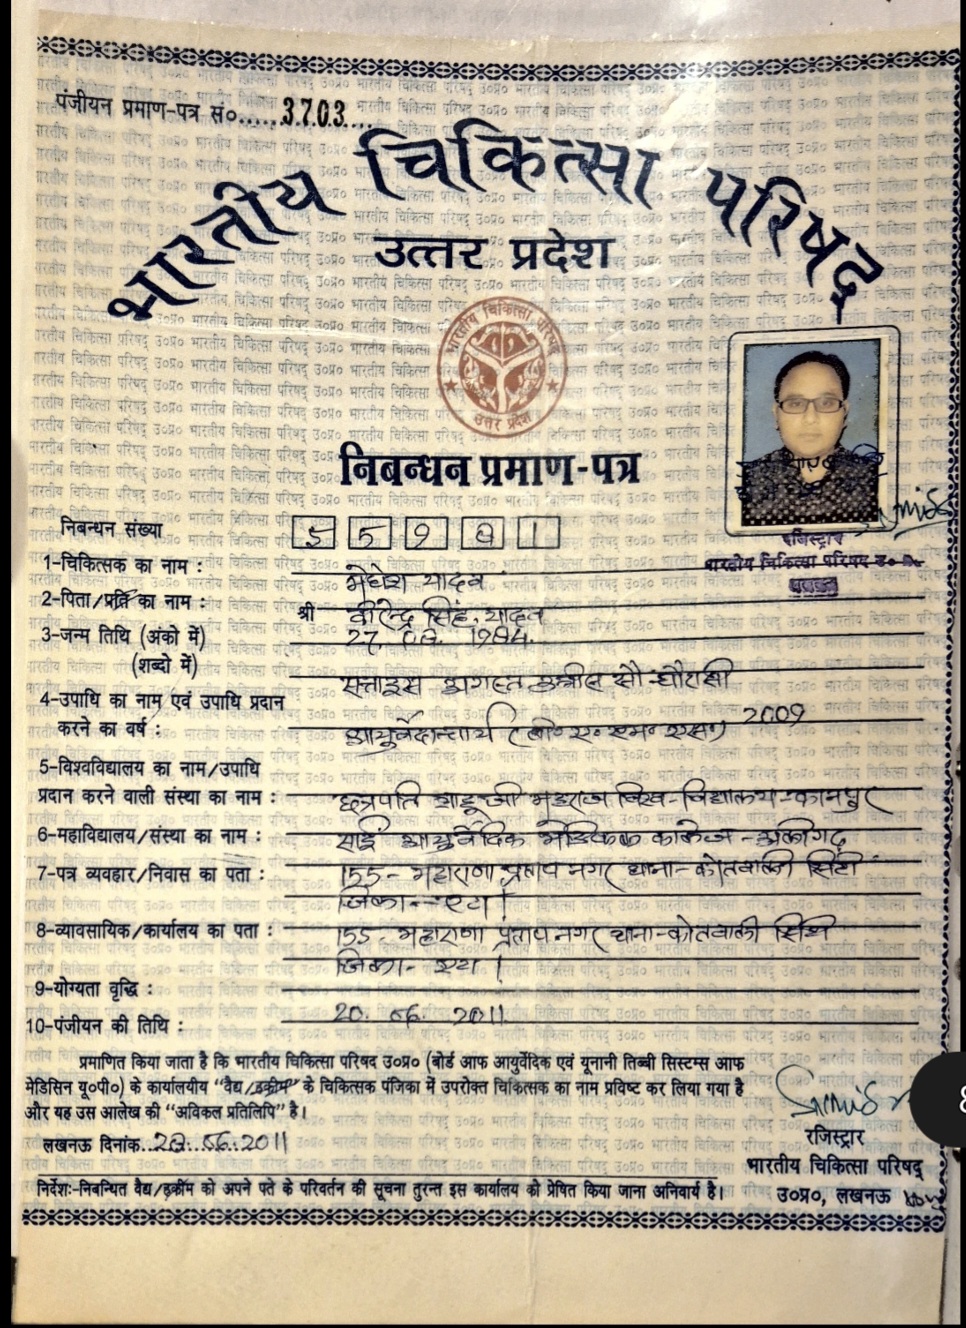 पंजीयन प्रमाण-पत्र सं०.....3703....
भारतीय चिकित्सा परिषद्
उत्तर प्रदेश
भारतीय चिकित्सा परिषद
उत्तर प्रदेश
निबन्धन प्रमाण-पत्र
निबन्धन संख्या 5 9 8 1
1-चिकित्सक का नाम : यादव
2-पिता/पति का नाम : श्री वीरेन्द्र सिंह यादव
3-जन्म तिथि (अंको में) 27. 08. 1984.
(शब्दो में) सत्ताइस अगस्त उन्नीस सौ चौरासी
4-उपाधि का नाम एवं उपाधि प्रदान
करने का वर्ष : आयुर्वेदाचार्य (बी० ए० एम० एस०) 2009
5-विश्वविद्यालय का नाम/उपाधि
प्रदान करने वाली संस्था का नाम : छत्रपति शाहूजी महाराज विश्व-विद्यालय-कानपुर
6-महाविद्यालय/संस्था का नाम : साई आयुर्वेदिक मेडिकल कालेज-अलीगढ़
7-पत्र व्यवहार/निवास का पता : 155- महाराणा प्रताप नगर थाना-कोतवाली सिटी
जिला- एटा।
8-व्यावसायिक/कार्यालय का पता : 155- महाराणा प्रताप नगर थाना-कोतवाली सिटी
जिला- एटा।
9-योग्यता वृद्धि :
10-पंजीयन की तिथि : 20. 06. 2011.
प्रमाणित किया जाता है कि भारतीय चिकित्सा परिषद उ०प्र० (बोर्ड आफ आयुर्वेदिक एवं यूनानी तिब्बी सिस्टम्स आफ
मेडिसिन यू०पी०) के कार्यालयीय "वैद्य/हकीम" के चिकित्सक पंजिका में उपरोक्त चिकित्सक का नाम प्रविष्ट कर लिया गया है
और यह उस आलेख की "अविकल प्रतिलिपि" है।
लखनऊ दिनांक..28..06..2011
रजिस्ट्रार
भारतीय चिकित्सा परिषद्
उ०प्र०, लखनऊ
निर्देश:-निबन्धित वैद्य/हकीम को अपने पते के परिवर्तन की सूचना तुरन्त इस कार्यालय को प्रेषित किया जाना अनिवार्य है।
रजिस्ट्रार
भारतीय चिकित्सा परिषद उ० प्र०
लखनऊ